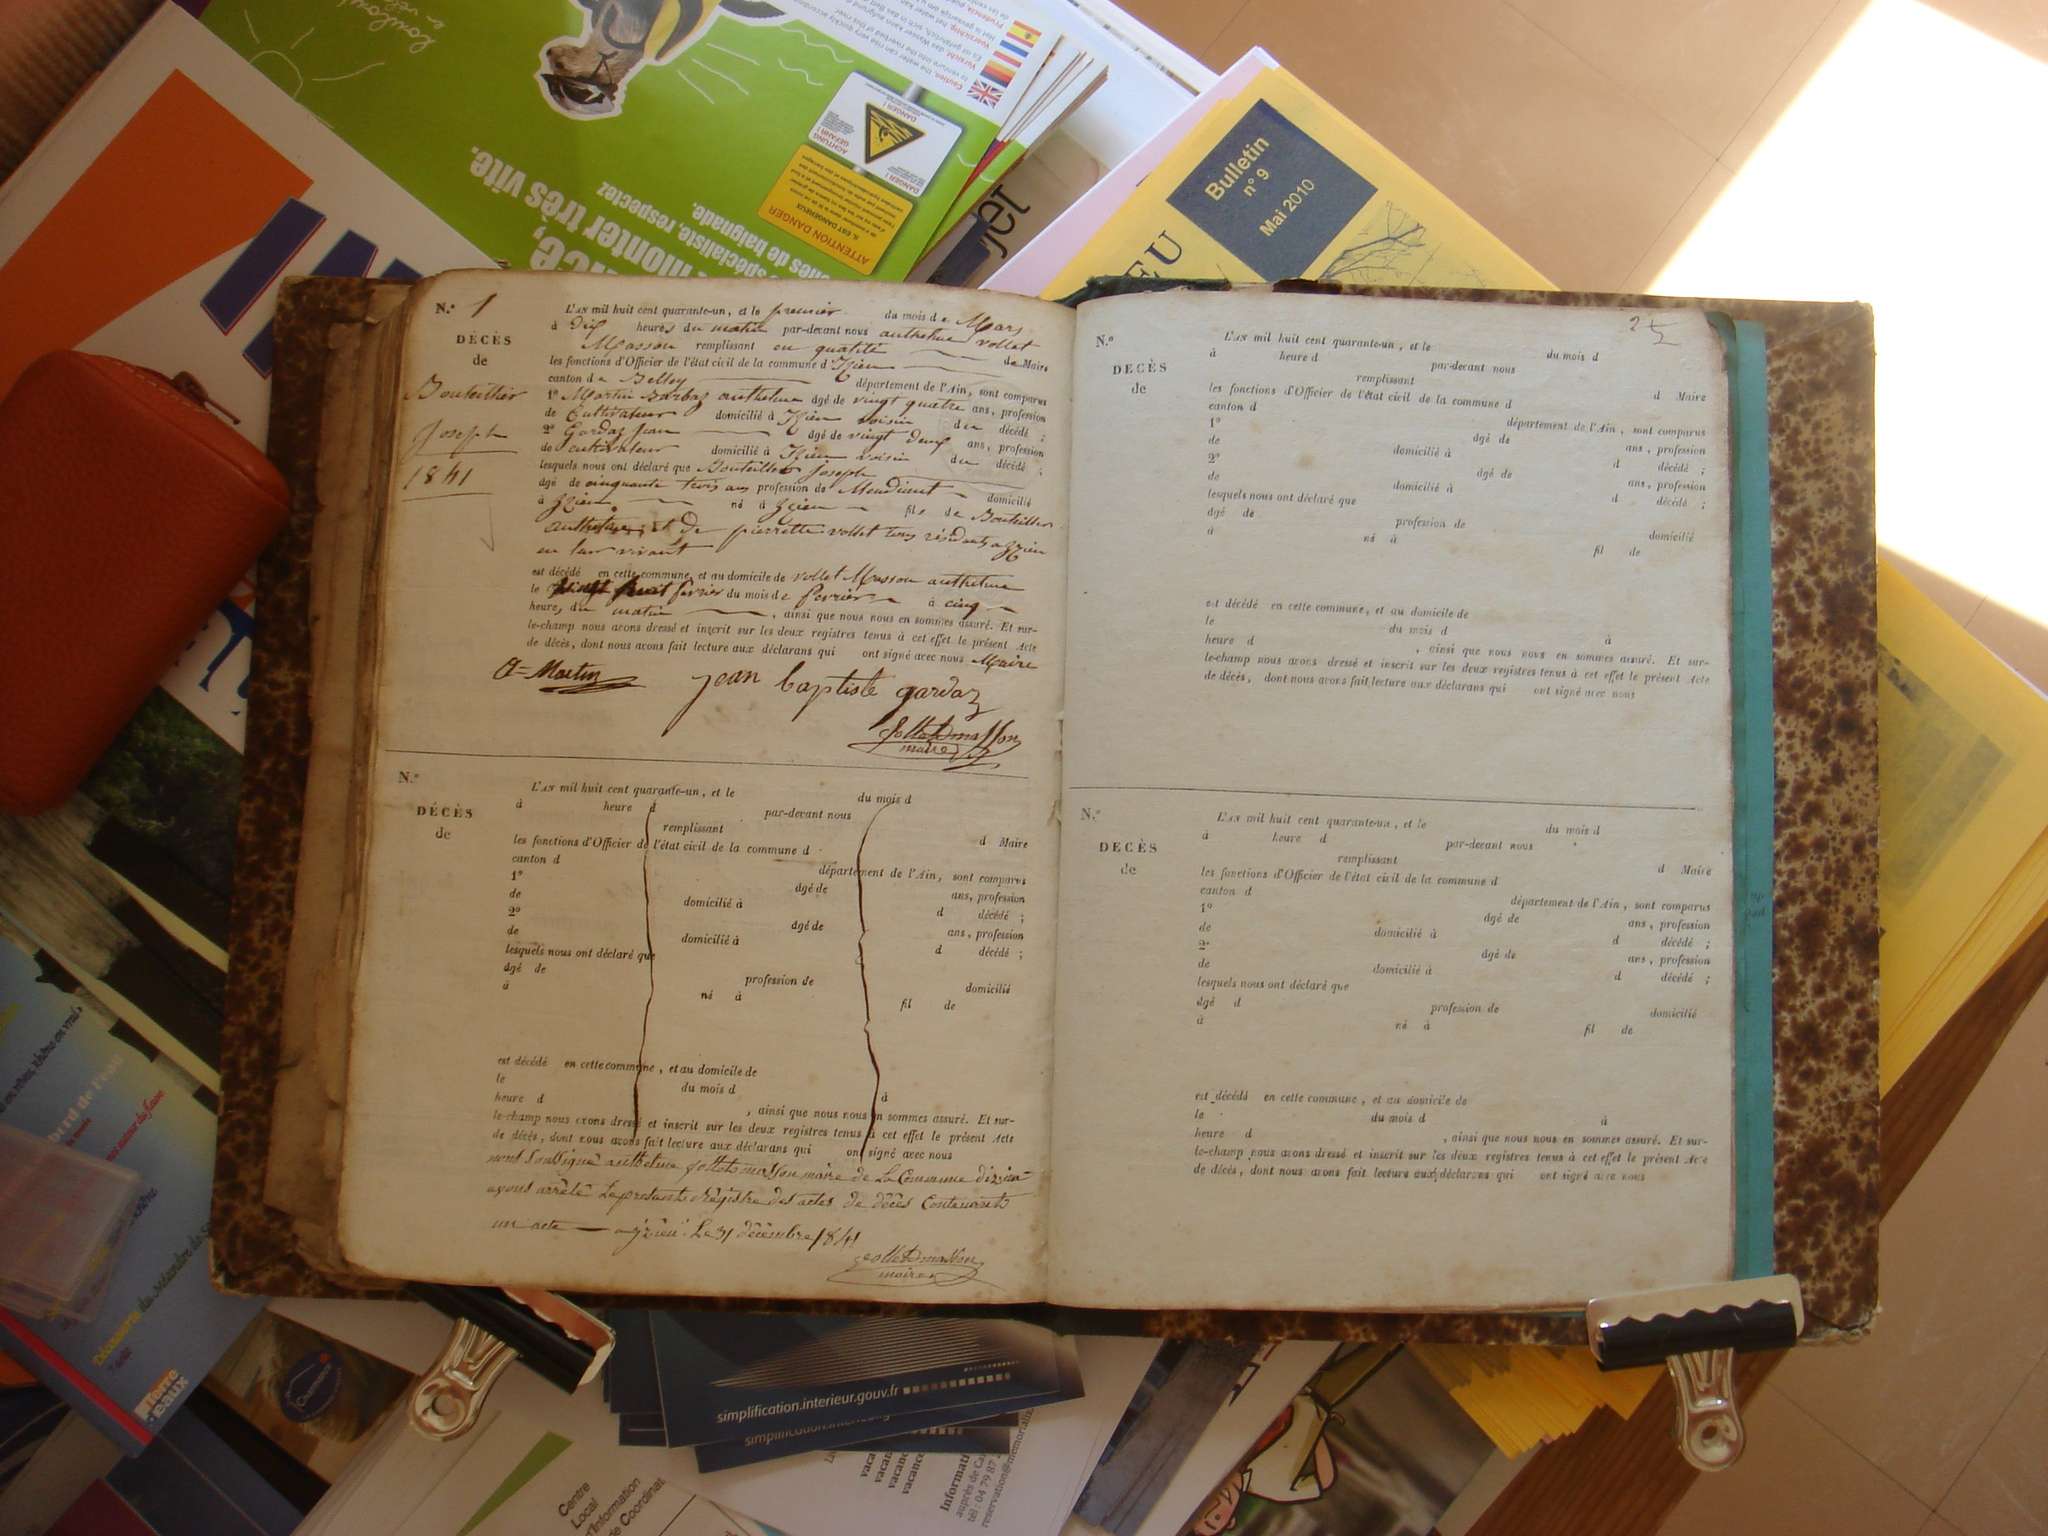 N.° 1
DÉCÈS
de
Bouteiller
Joseph
1841
L'AN mil huit cent quarante-un, et le premier du mois de Mars
à dix heures du matin par-devant nous anthelme vollet
Masson remplissant en qualité de Maire
les fonctions d'Officier de l'état civil de la commune d'Izieu
canton de Belley département de l'Ain, sont comparus
1° Martin Barbaz anthelme âgé de vingt quatre ans, profession
de Cultivateur domicilié à Izieu voisin du décédé ;
2° Gardaz Jean âgé de vingt deux ans, profession
de cultivateur domicilié à Izieu voisin du décédé ;
lesquels nous ont déclaré que Bouteiller Joseph
âgé de cinquante trois ans profession de Mendiant domicilié
à Izieu né à Izieu fils de Bouteiller
anthelme et de pierrette vollet tous résidants a Izieu
en leur vivant
est décédé en cette commune, et au domicile de vollet Masson anthelme
le vingt huit fevrier du mois de fevrier à cinq
heures du matin, ainsi que nous nous en sommes assuré. Et sur-
le-champ nous avons dressé et inscrit sur les deux registres tenus à cet effet le présent Acte
de décès, dont nous avons fait lecture aux déclarans qui ont signé avec nous Maire
A= Martin
jean baptiste gardaz
maire
N.°
DÉCÈS
de
L'AN mil huit cent quarante-un, et le du mois d
à heure d par-devant nous
remplissant d Maire
les fonctions d'Officier de l'état civil de la commune d
canton d département de l'Ain, sont comparus
1° âgé de ans, profession
de domicilié à d décédé ;
2° âgé de ans, profession
de domicilié à d décédé ;
lesquels nous ont déclaré que
âgé de profession de domicilié
à né à fil de
est décédé en cette commune, et au domicile de
le du mois d à
heure d , ainsi que nous nous en sommes assuré. Et sur-
le-champ nous avons dressé et inscrit sur les deux registres tenus à cet effet le présent Acte
de décès, dont nous avons fait lecture aux déclarans qui ont signé avec nous
nous Soussigné anthelme jolletmasson maire de La Commune dizieu
avons arrêté Le présent Régistre des actes de décès Contenant
un acte a jzieu Le 31 décembre 1841
maire
25
N.°
DECÈS
de
L'AN mil huit cent quarante-un, et le du mois d
à heure d par-devant nous
remplissant d Maire
les fonctions d'Officier de l'état civil de la commune d
canton d département de l'Ain, sont comparus
1° âgé de ans, profession
de domicilié à d décédé ;
2° âgé de ans, profession
de domicilié à d décédé ;
lesquels nous ont déclaré que
âgé de profession de domicilié
à né à fil de
est décédé en cette commune, et au domicile de
le du mois d à
heure d , ainsi que nous nous en sommes assuré. Et sur-
le-champ nous avons dressé et inscrit sur les deux registres tenus à cet effet le présent Acte
de décès, dont nous avons fait lecture aux déclarans qui ont signé avec nous
N.°
DECÈS
de
L'AN mil huit cent quarante-un, et le du mois d
à heure d par-devant nous
remplissant d Maire
les fonctions d'Officier de l'état civil de la commune d
canton d département de l'Ain, sont comparus
1° âgé de ans, profession
de domicilié à d décédé ;
2° âgé de ans, profession
de domicilié à d décédé ;
lesquels nous ont déclaré que
âgé d profession de domicilié
à né à fil de
est décédé en cette commune, et au domicile de
le du mois d à
heure d , ainsi que nous nous en sommes assuré. Et sur-
le-champ nous avons dressé et inscrit sur les deux registres tenus à cet effet le présent Acte
de décès, dont nous avons fait lecture aux déclarans qui ont signé avec nous
Bulletin
n° 9
Mai 2010
EU
monter très vite.
spécialiste, respectez
de baignade,
ATTENTION DANGER
IL EST DANGEREUX
ACHTUNG
GEFAHR !
DANGER !
jet
Terre
d'eaux
simplification.interieur.gouv.fr
Centre
Local
d'Information
de Coordinat
Informati
auprès de Ca
tél : 04 79 87
reservation@memorializ